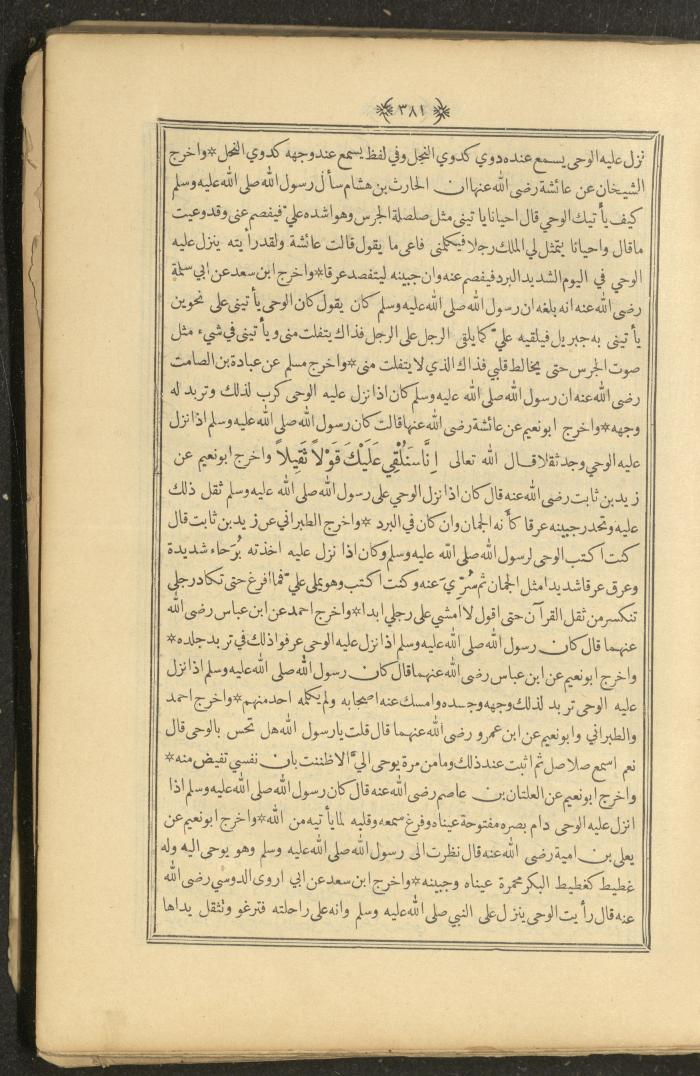 ﴿٣٨١﴾
نزل عليه الوحى يسمع عنده دوي كدوي النحل وفي لفظ يسمع عند وجهه كدوي النحل * واخرج
الشيخان عن عائشة رضى الله عنها ان الحارث بن هشام سأل رسول الله صلى الله عليه وسلم
كيف يأتيك الوحي قال احيانا يا تينى مثل صلصلة الجرس وهو اشده عليّ فيفصم عنى وقد وعيت
ما قال واحيانا يتمثل لي الملك رجلا فيكلمنى فاعى ما يقول قالت عائشة ولقد رأيته ينزل عليه
الوحي في اليوم الشديد البرد فيفصم عنه وان جبينه ليتفصد عرقا * واخرج ابن سعد عن ابي سلمة
رضى الله عنه انه بلغه ان رسول الله صلى الله عليه وسلم كان يقول كان الوحى يأ تينى على نحوين
يأ تينى به جبريل فيلقيه عليّ كما يلقى الرجل على الرجل فذاك يتفلت منى ويأ تينى في شيء مثل
صوت الجرس حتى يخالط قلبي فذاك الذي لا يتفلت منى * واخرج مسلم عن عبادة بن الصامت
رضى الله عنه ان رسول الله صلى الله عليه وسلم كان اذا نزل عليه الوحى كرب لذلك وتربد له
وجهه * واخرج ابو نعيم عن عائشة رضى الله عنها قالت كان رسول الله صلى الله عليه وسلم اذا نزل
عليه الوحي وجد ثقلا قال الله تعالى اِنَّا سَنُلْقِي عَلَيْكَ قَوْلاً ثَقِيلاً واخرج ابو نعيم عن
زيد بن ثابت رضى الله عنه قال كان اذا نزل الوحي على رسول الله صلى الله عليه وسلم ثقل ذلك
عليه وتحدر جبينه عرقا كأنه الجمان وان كان في البرد * واخرج الطبراني عن زيد بن ثابت قال
كنت اكتب الوحى لرسول الله صلى الله عليه وسلم وكان اذا نزل عليه اخذته بُرَحاء شديدة
وعرق عرقا شديدا مثل الجمان ثم سُرّيَ عنه وكنت اكتب وهو يملى عليّ فما افرغ حتى تكاد رجلى
تنكسر من ثقل القرآن حتى اقول لا امشي على رجلي ابدا * واخرج احمد عن ابن عباس رضى الله
عنهما قال كان رسول الله صلى الله عليه وسلم اذا نزل عليه الوحى عرفوا ذلك في تربد جلده *
واخرج ابو نعيم عن ابن عباس رضى الله عنهما قال كان رسول الله صلى الله عليه وسلم اذا نزل
عليه الوحى تربد لذلك وجهه وجسده وامسك عنه اصحابه ولم يكلمه احد منهم * واخرج احمد
والطبراني وابو نعيم عن ابن عمرو رضى الله عنهما قال قلت يا رسول الله هل تحس بالوحى قال
نعم اسمع صلاصل ثم اثبت عند ذلك وما من مرة يوحى اليّ الا ظننت بان نفسي تفيض منه *
واخرج ابو نعيم عن الغلتان بن عاصم رضى الله عنه قال كان رسول الله صلى الله عليه وسلم اذا
انزل عليه الوحى دام بصره مفتوحة عيناه وفرغ سمعه وقلبه لما يأ تيه من الله * واخرج ابو نعيم عن
يعلى بن امية رضى الله عنه قال نظرت الى رسول الله صلى الله عليه وسلم وهو يوحى اليه وله
غطيط كغطيط البكر محمرة عيناه وجبينه * واخرج ابن سعد عن ابي اروى الدوسي رضى الله
عنه قال رأيت الوحى ينزل على النبي صلى الله عليه وسلم وانه على راحلته فترغو وتثقل يداها